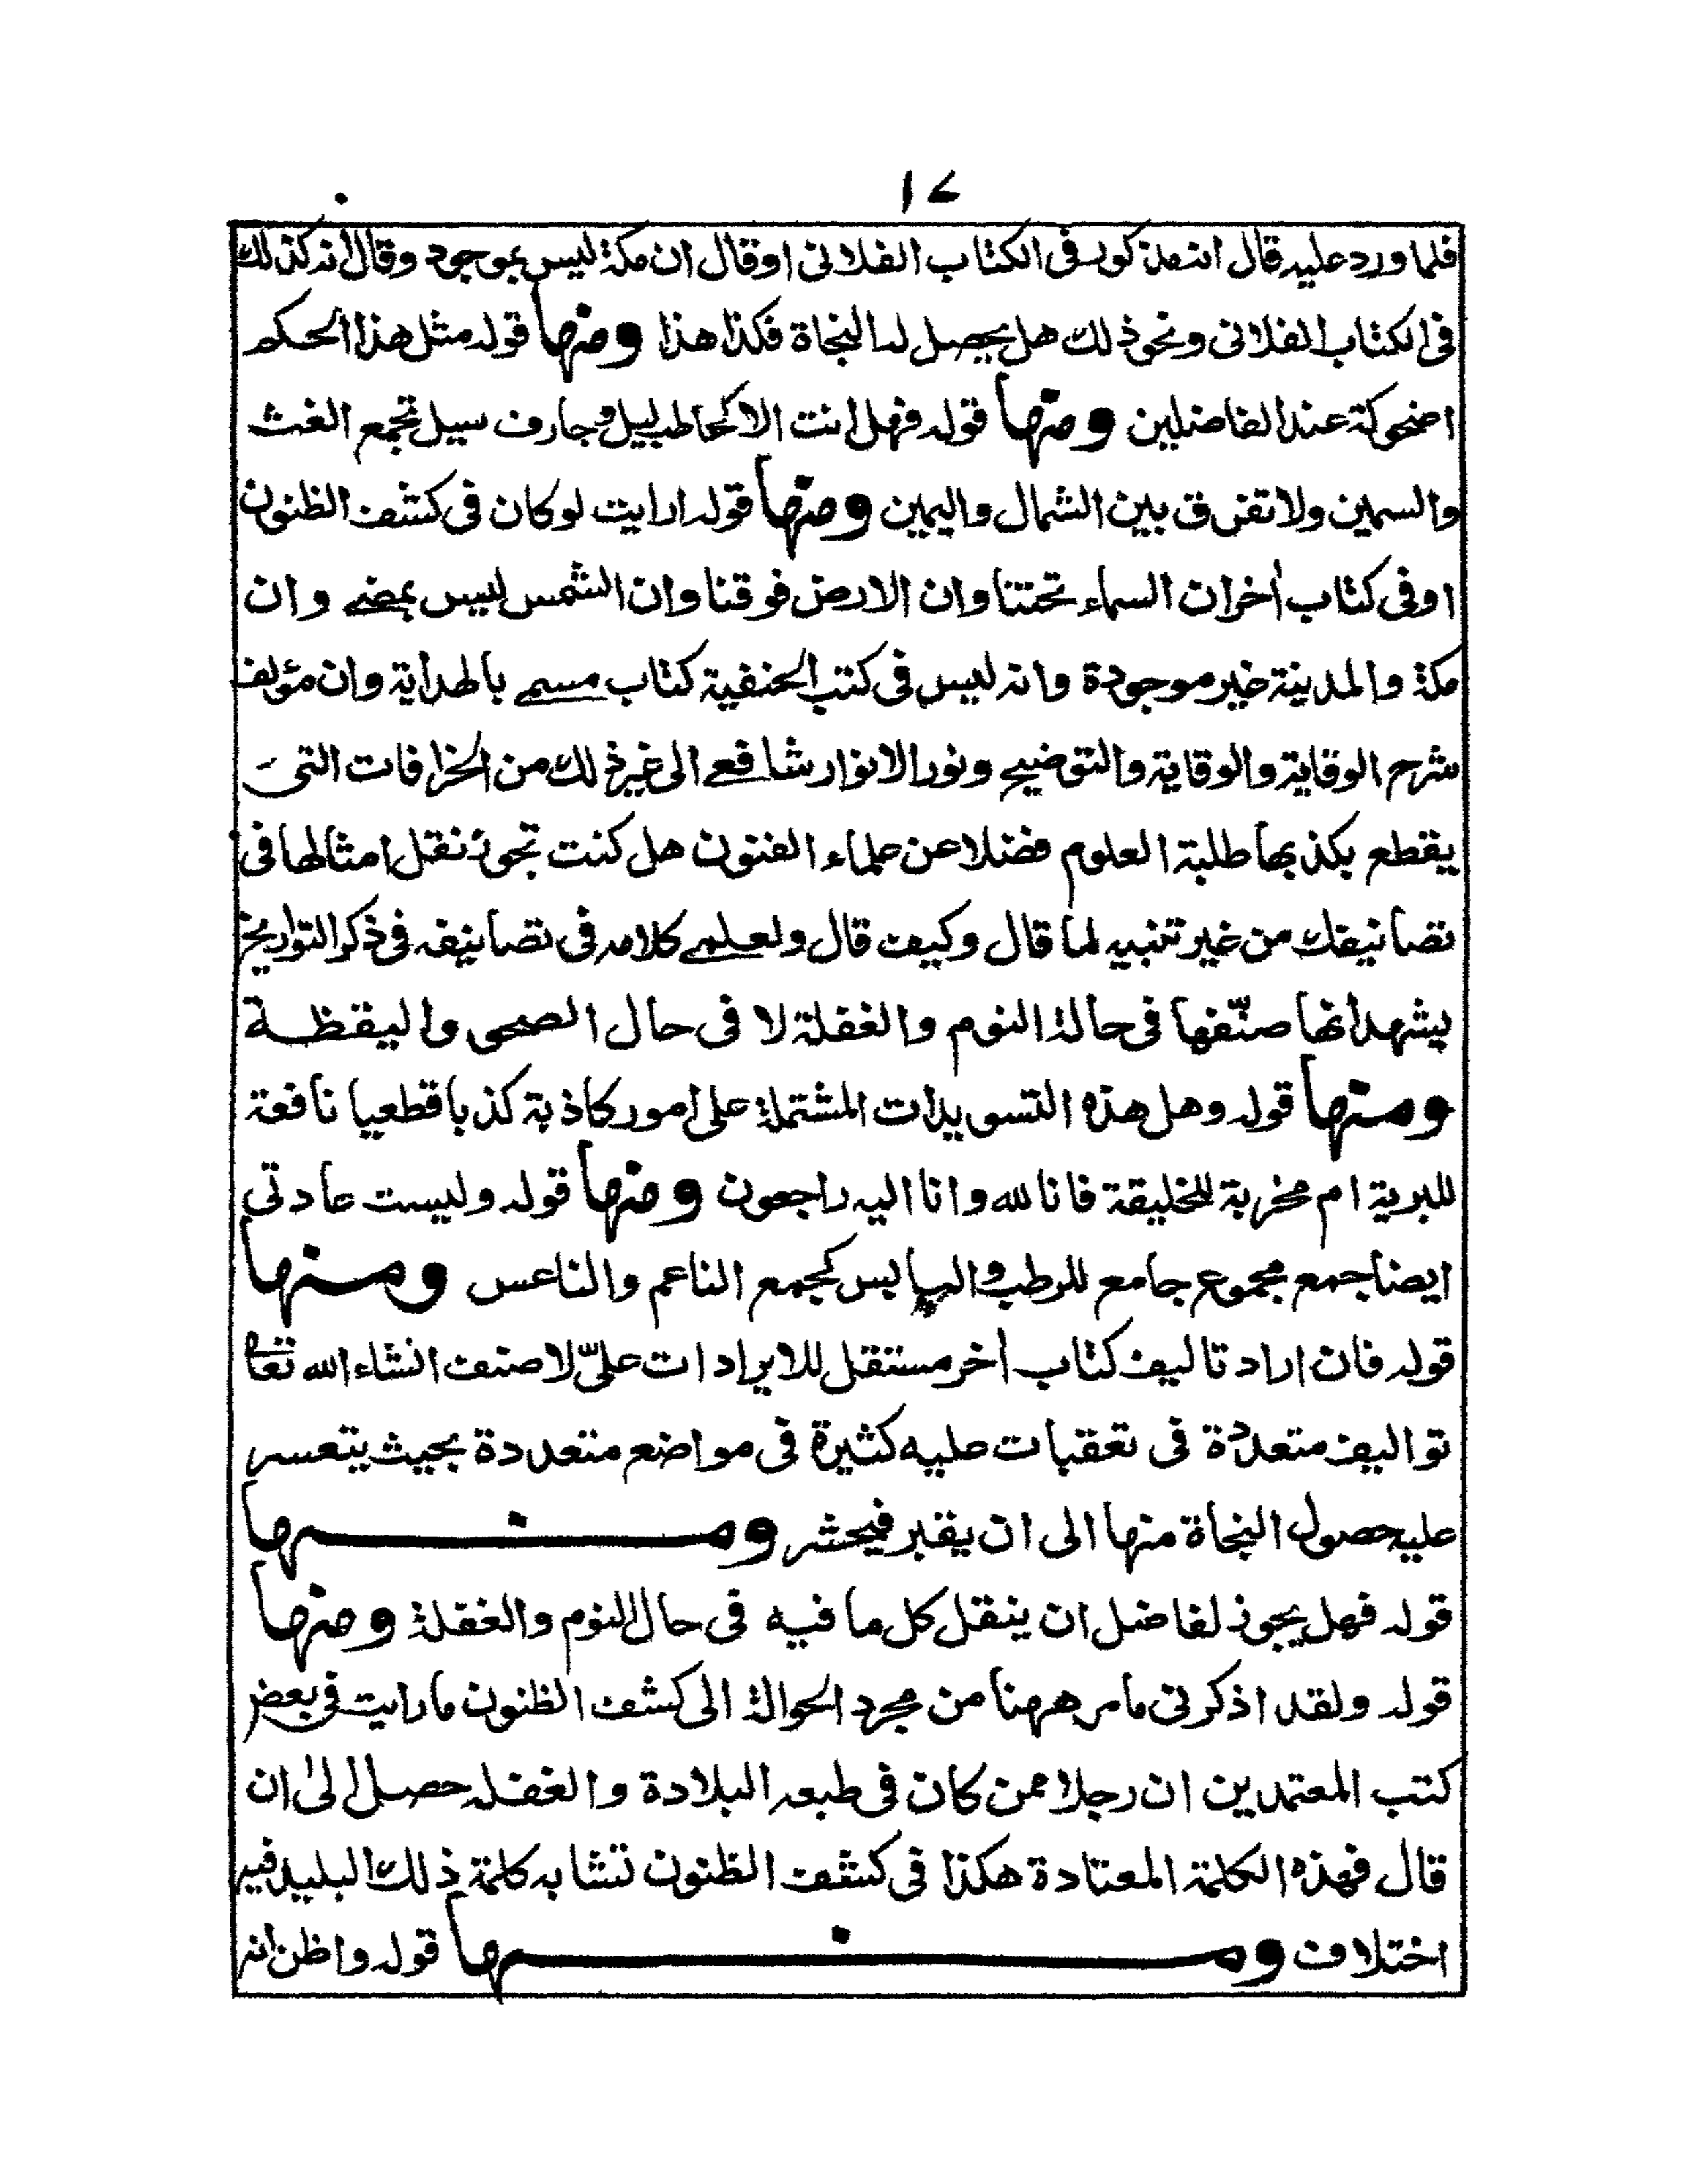 ١٧
فلما ورد عليه قال انه مذكور فى الكتاب الفلانى او قال ان مكة ليس بموجود وقال انه كذلك
فى الكتاب الفلانى ونحو ذلك هل يحصل له النجاة فكذا هذا ومنها قوله مثل هذا الحكم
اضحوكة عند الفاضلين ومنها قوله فهل انت الا كحاطب ليل وجارف سيل تجمع الغث
والسمين ولا تفرق بين الشمال واليمين ومنها قوله ارايت لو كان فى كشف الظنون
او فى كتاب اخر ان السماء تحتنا وان الارض فوقنا وان الشمس ليس بمضے وان
مكة والمدينة غير موجودة وانه ليس فى كتب الحنفية كتاب مسمے بالهداية وان مؤلف
شرح الوقاية والوقاية والتوضيح ونور الانوار شافعے الى غير ذلك من الخرافات التى
يقطع بكذبها طلبة العلوم فضلا عن علماء الفنون هل كنت تجوز نقل امثالها فى
تصانيفك من غير تنبيه لما قال وكيف قال ولعلمے كلامه فى تصانيفه فى ذكر التواريخ
يشهد انها صنّفها فى حالة النوم والغفلة لا فى حال الصحى واليقظة
ومنها قوله وهل هذه التسويدات المشتملة على امور كاذبة كذبا قطعيا نافعة
للبرية ام مخربة للخليقة فانا لله وانا اليه راجعون ومنها قوله وليست عادتى
ايضا جمع مجموع جامع للرطب واليابس كجمع الناعم والناعس ومنها
قوله فان اراد تاليف كتاب اخر مستقل للايرادات علىّ لاصنف انشاء الله تعا
تواليف متعددة فى تعقبات عليه كثيرة فى مواضع متعددة بحيث يتعسر
عليه حصول النجاة منها الى ان يقبر فيحشر ومنها
قوله فهل يجوز لفاضل ان ينقل كل ما فيه فى حال النوم والغفلة ومنها
قوله ولقد اذكرنى ما مر ههنا من مجرد الحوالة الى كشف الظنون ما رايت فى بعض
كتب المعتمدين ان رجلا ممن كان فى طبعه البلادة والغفله حصل الى ان
قال فهذه الكلمة المعتادة هكذا فى كشف الظنون تشابه كلمة ذلك البليد فيه
اختلاف ومنها قوله واظن انه